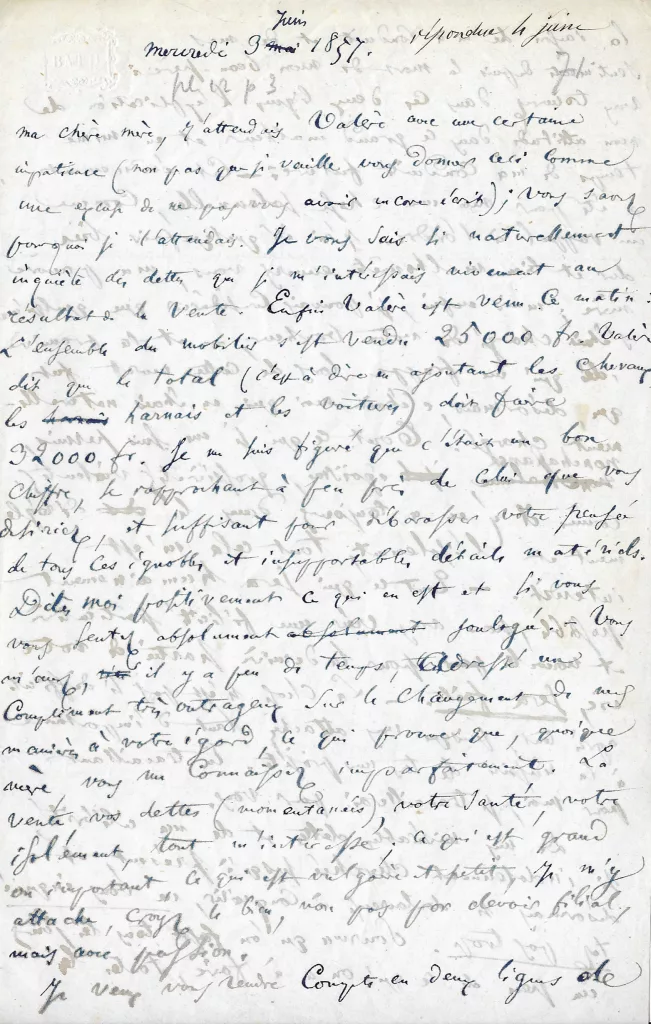 Juin
mercredi 3 mai 1857. répondue 4 juin
ma chère mère, j'attendais Valère avec une certaine
impatience (non pas que je veuille vous donner ceci comme
une excuse de ne pas vous avoir encore écrit); vous savez
pourquoi je l'attendais. Je vous sais si naturellement
inquiète des dettes que je m'intéressais vivement au
résultat de la vente. Enfin Valère est venu ce matin:
L'ensemble du mobilier s'est vendu 25000 fr. Valère
dit que le total (c'est à dire en ajoutant les chevaux,
les harnais harnais et les voitures) doit faire
32000 fr. Je me suis figuré que c'était un bon
chiffre, se rapprochant à peu près de celui que vous
désiriez, et suffisant pour débarasser votre pensée
de tous ces ignobles et insupportables détails matériels.
Dites moi positivement ce qui en est et si vous
vous sentez absolument absolument soulagée. – Vous
m'avez, il y a peu de temps, adressé un
compliment très outrageux sur le changement de mes
manières à votre égard, ce qui prouve que, quoique
mère, vous me connaissez imparfaitement. La
vente, vos dettes (momentanées), votre santé, votre
isolément, tout m'intéresse; ce qui est grand
ou important ce qui est vulgaire et petit, je m'y
attache, croyez le bien, non pas par devoir filial,
mais avec passion.
Je veux vous rendre compte en deux lignes de